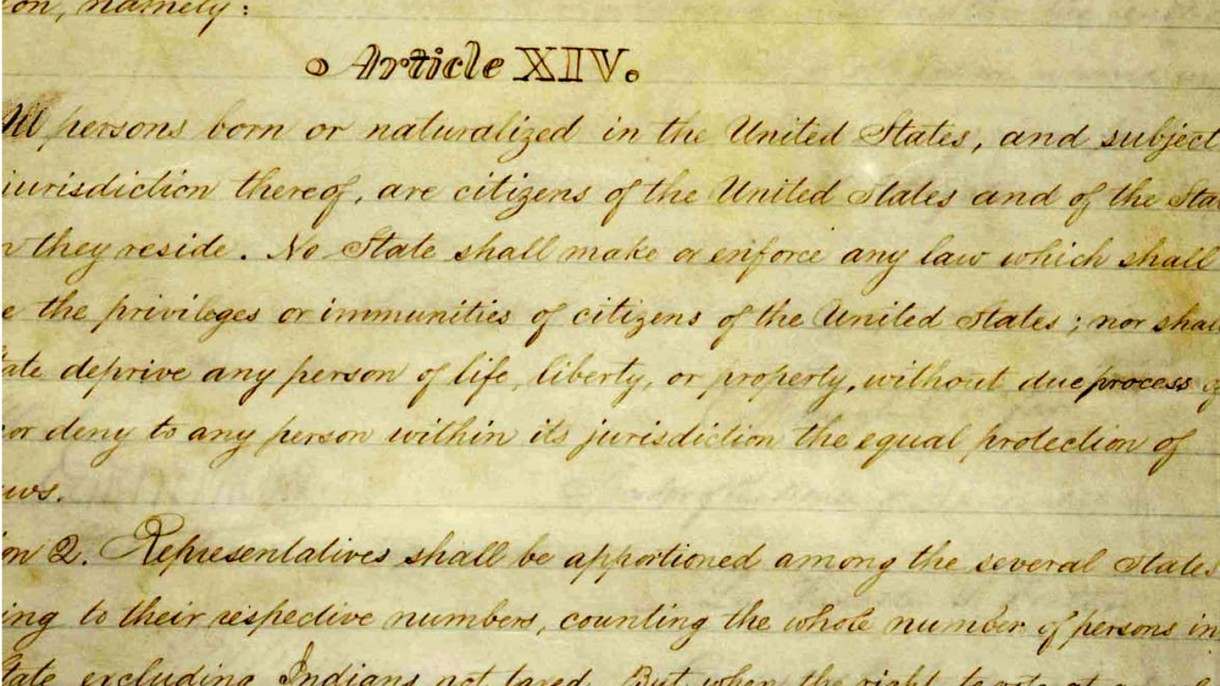 on, namely:
Article XIV.
All persons born or naturalized in the United States, and subject
jurisdiction thereof, are citizens of the United States and of the Stat
n they reside. No State shall make or enforce any law which shall
e the privileges or immunities of citizens of the United States; nor shall
ate deprive any person of life, liberty, or property, without due process of
or deny to any person within its jurisdiction the equal protection of
aws.
on 2. Representatives shall be apportioned among the several States
ing to their respective numbers, counting the whole number of persons in
tate excluding Indians not taxed. But when the right to vote at